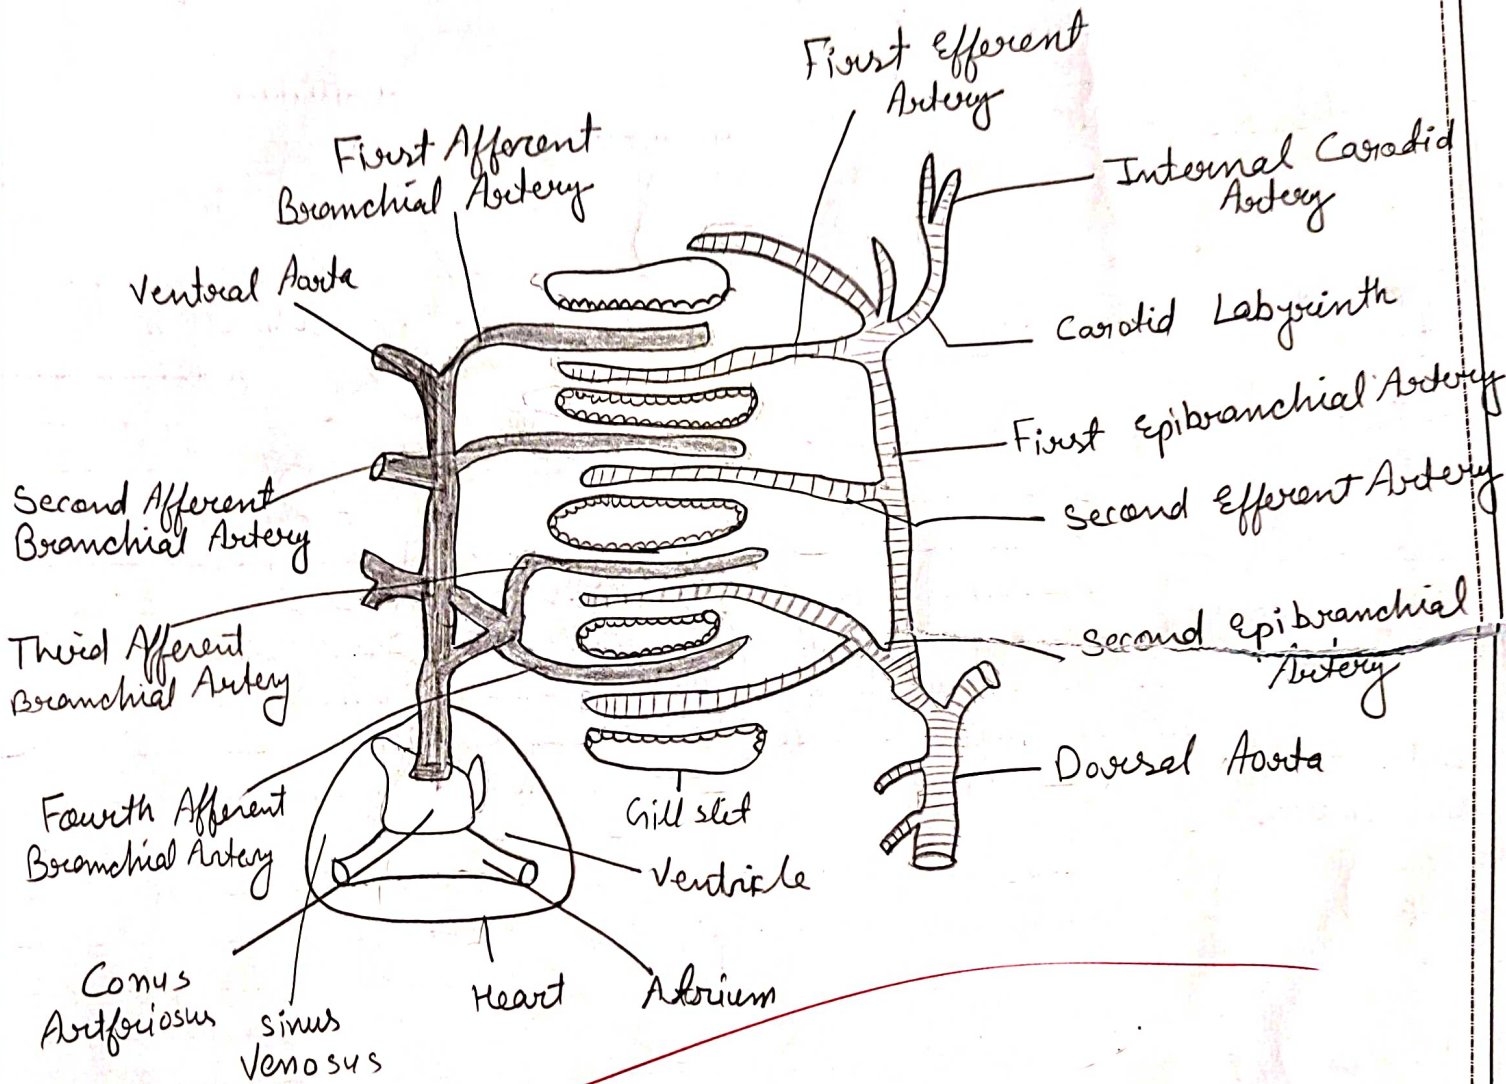 First Efferent
Artery
First Afferent
Branchial Artery
Internal Caradid
Artery
Ventral Aorta
Carotid Labyrinth
First Epibranchial Artery
Second Efferent Artery
Second Afferent
Branchial Artery
Second Epibranchial
Artery
Third Afferent
Branchial Artery
Dorsal Aorta
Fourth Afferent
Branchial Artery
Gill slit
Ventricle
Conus
Artferiosus
Sinus
Venosus
Heart
Atrium